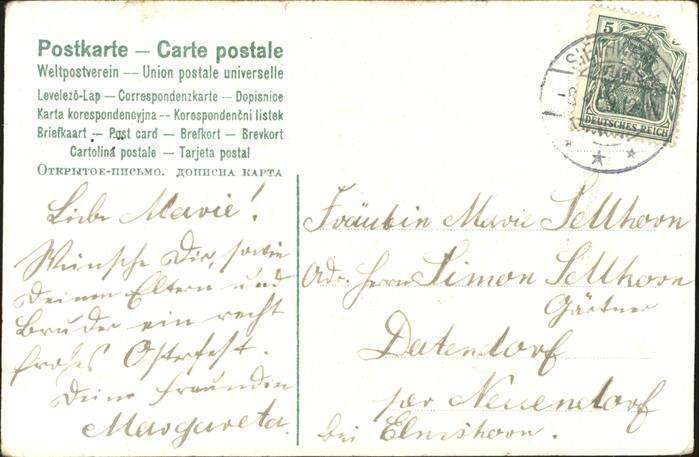 Postkarte — Carte postale
Weltpostverein — Union postale universelle
Levelező-Lap — Correspondenzkarte — Dopisnice
Karta korespondencyjna — Korespondenční listek
Briefkaart — Post card — Brefkort — Brevkort
Cartolina postale — Tarjeta postal
Открытое-письмо. дописна карта
5
DEUTSCHES REICH
Liebe Marie!
Wünsche Dir, sowie
Deinen Eltern und
Bruder ein recht
frohes Osterfest.
Deine Freundin
Margareta.
Fräulein Marie Sellhorn
Adr. Herrn Simon Sellhorn
Gärtner
Datendorf
per Neuendorf
bei Elmshorn.